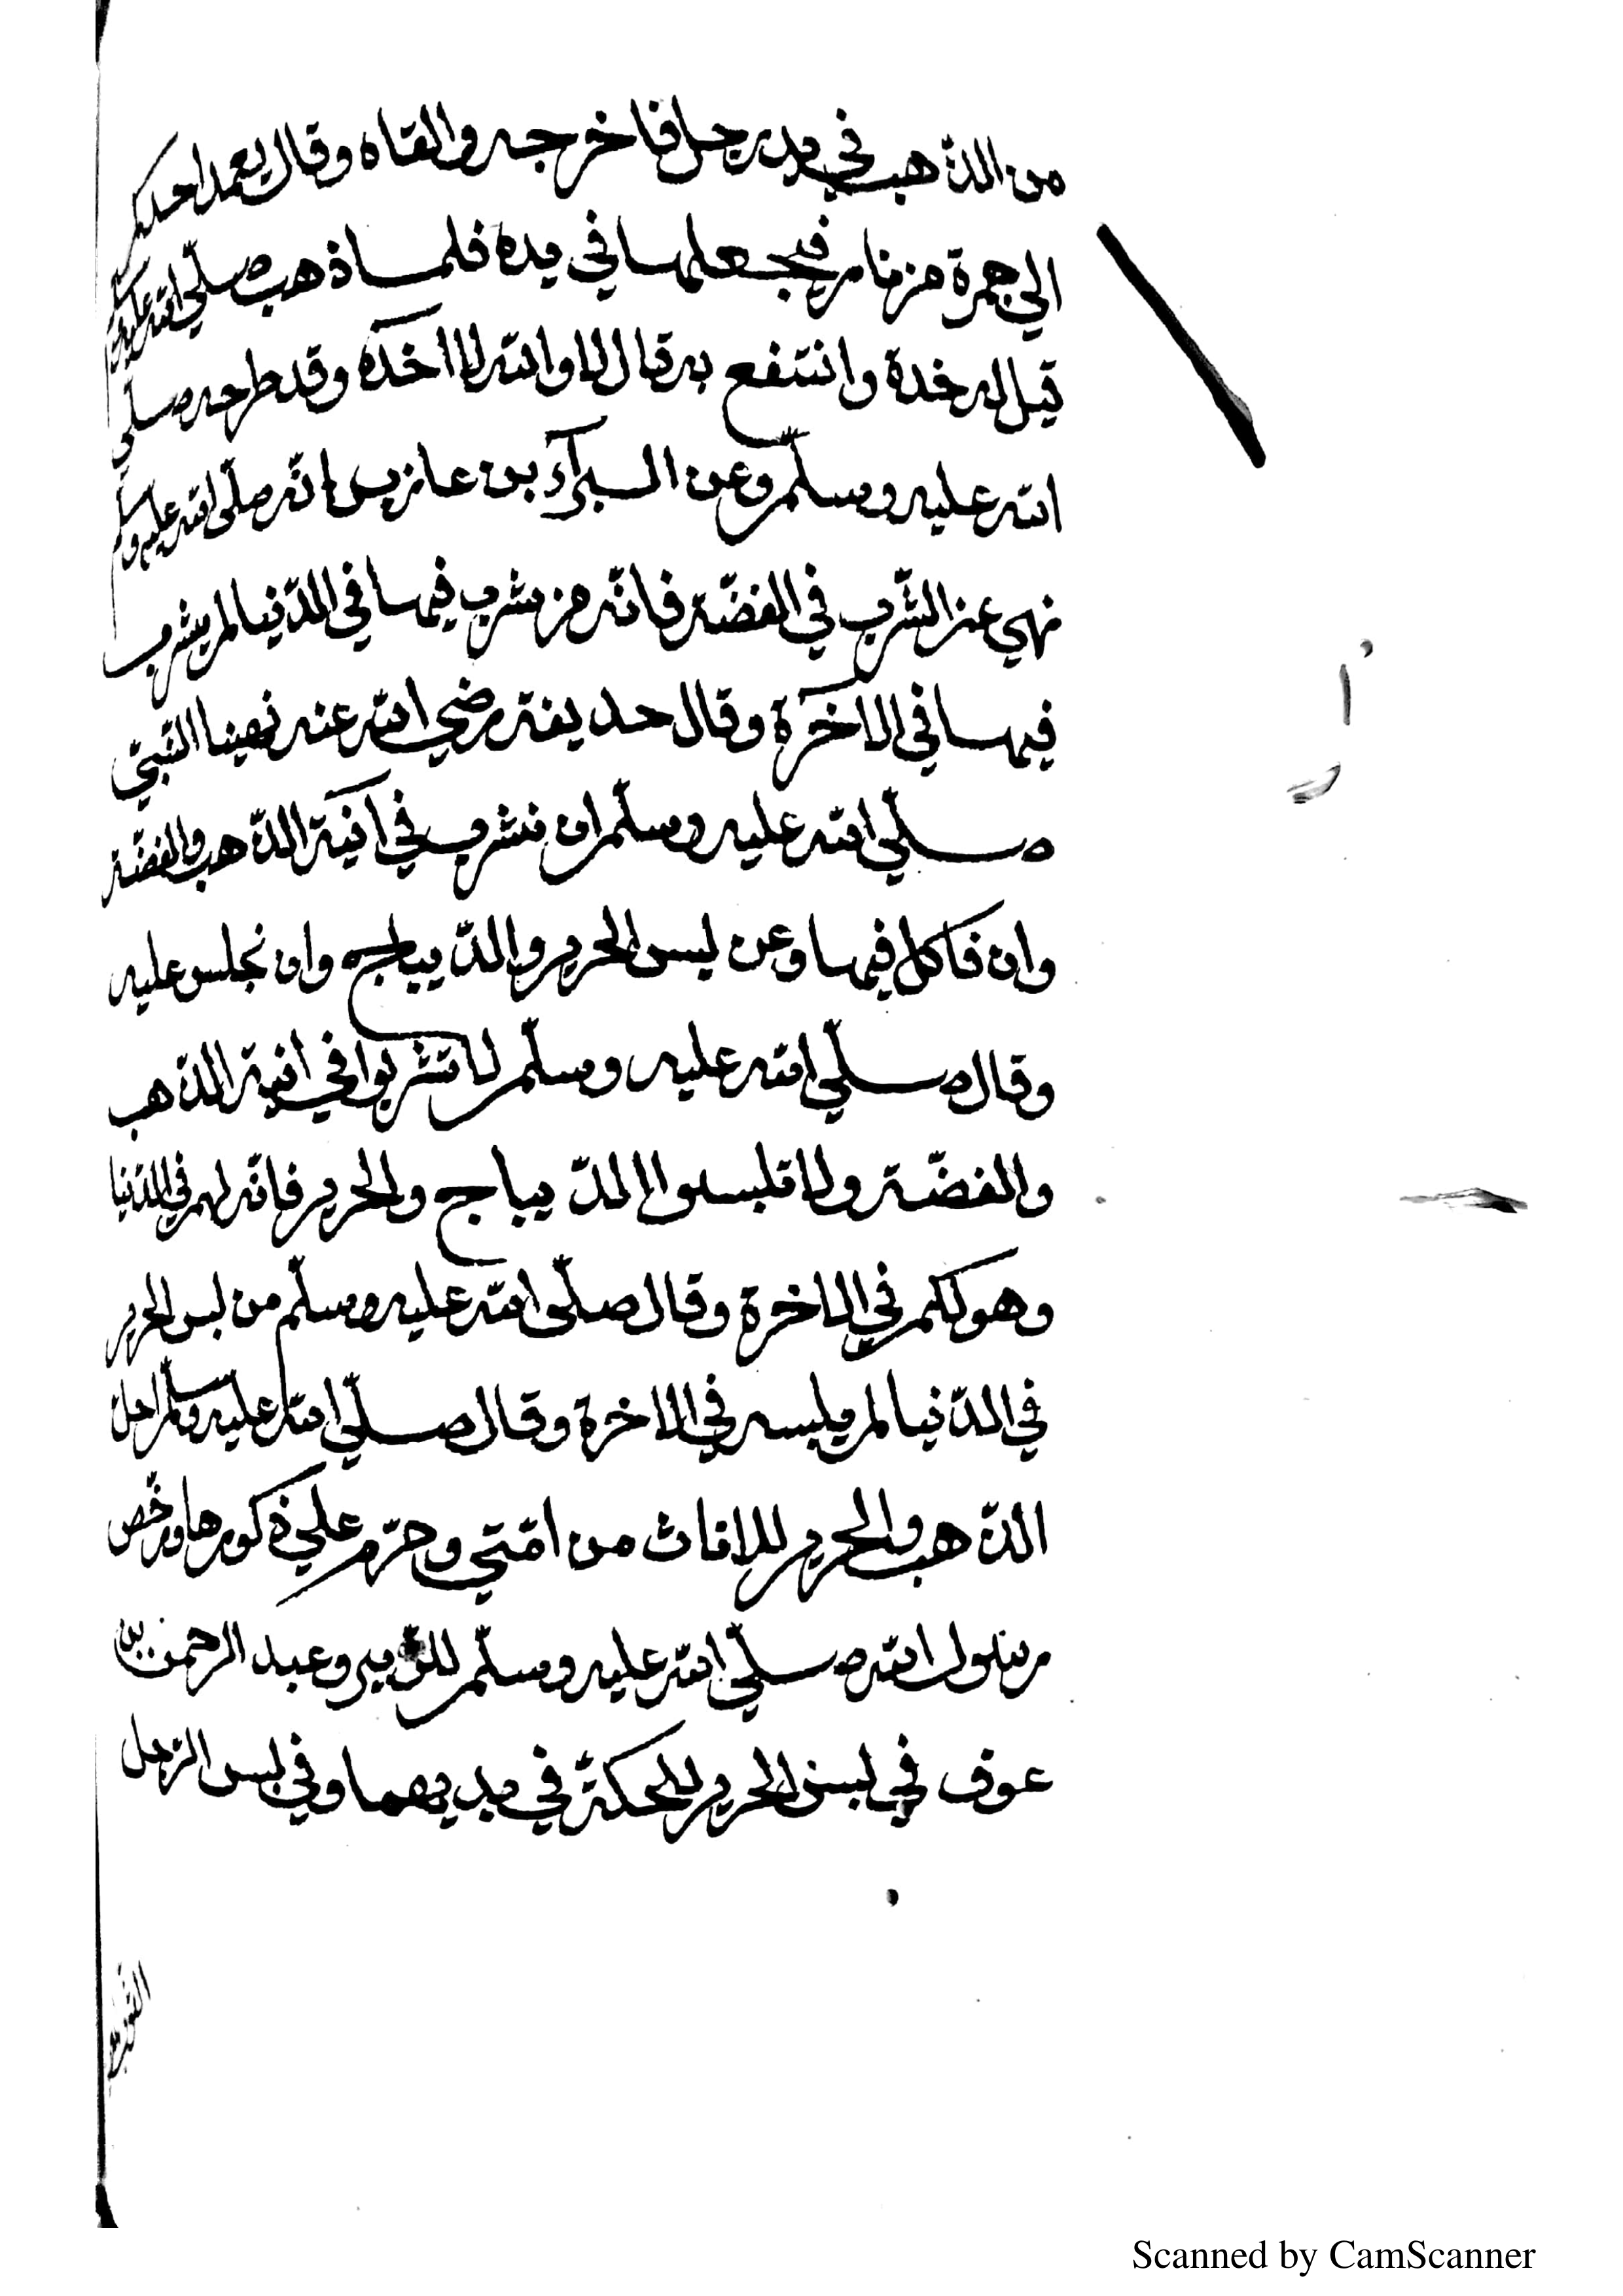 من الذّهب في يد رجل فاخرجه والقاه وقال يعمد احدكم
الي جمرة من نار فيجعلها في يده فلما ذهب صلّي الله عليه وسلم
قيل له خذه وانتفع به قال لا والله لا آخذه وقد طرحه صلى
الله عليه وسلّم وعن البرآء بن عازب انّه صلّى الله عليه وسلم
نهي عن الشّرب في الفضّة فانّه من شرب فيها في الدّنيا لم يشرب
فيها في الآخرة وقال حذيفة رضي الله عنه نهينا النّبيّ
صلّي الله عليه وسلّم ان نشرب في آنية الذّهب والفضّة
وان ناكل فيها وعن لبس الحرير والدّيباج وان نجلس عليه
وقال صلّي الله عليه وسلّم لا تشربوا في انية الذّهب
والفضّة ولا تلبسوا الدّيباج والحرير فانّه لهم في الدّنيا
وهو لكم في الاخرة وقال صلّى الله عليه وسلّم من لبس الحرير
في الدّنيا لم يلبسه في الاخرة وقال صلّي الله عليه وسلم احلّ
الذّهب والحرير للاناث من امّتي وحرّم علي ذكورها ورخّص
رسول الله صلّي الله عليه وسلّم للزّبير وعبد الرحمن بن
عوف في لبس الحرير للحكّة في يديهما وفي لبس الرّجل
Scanned by CamScanner